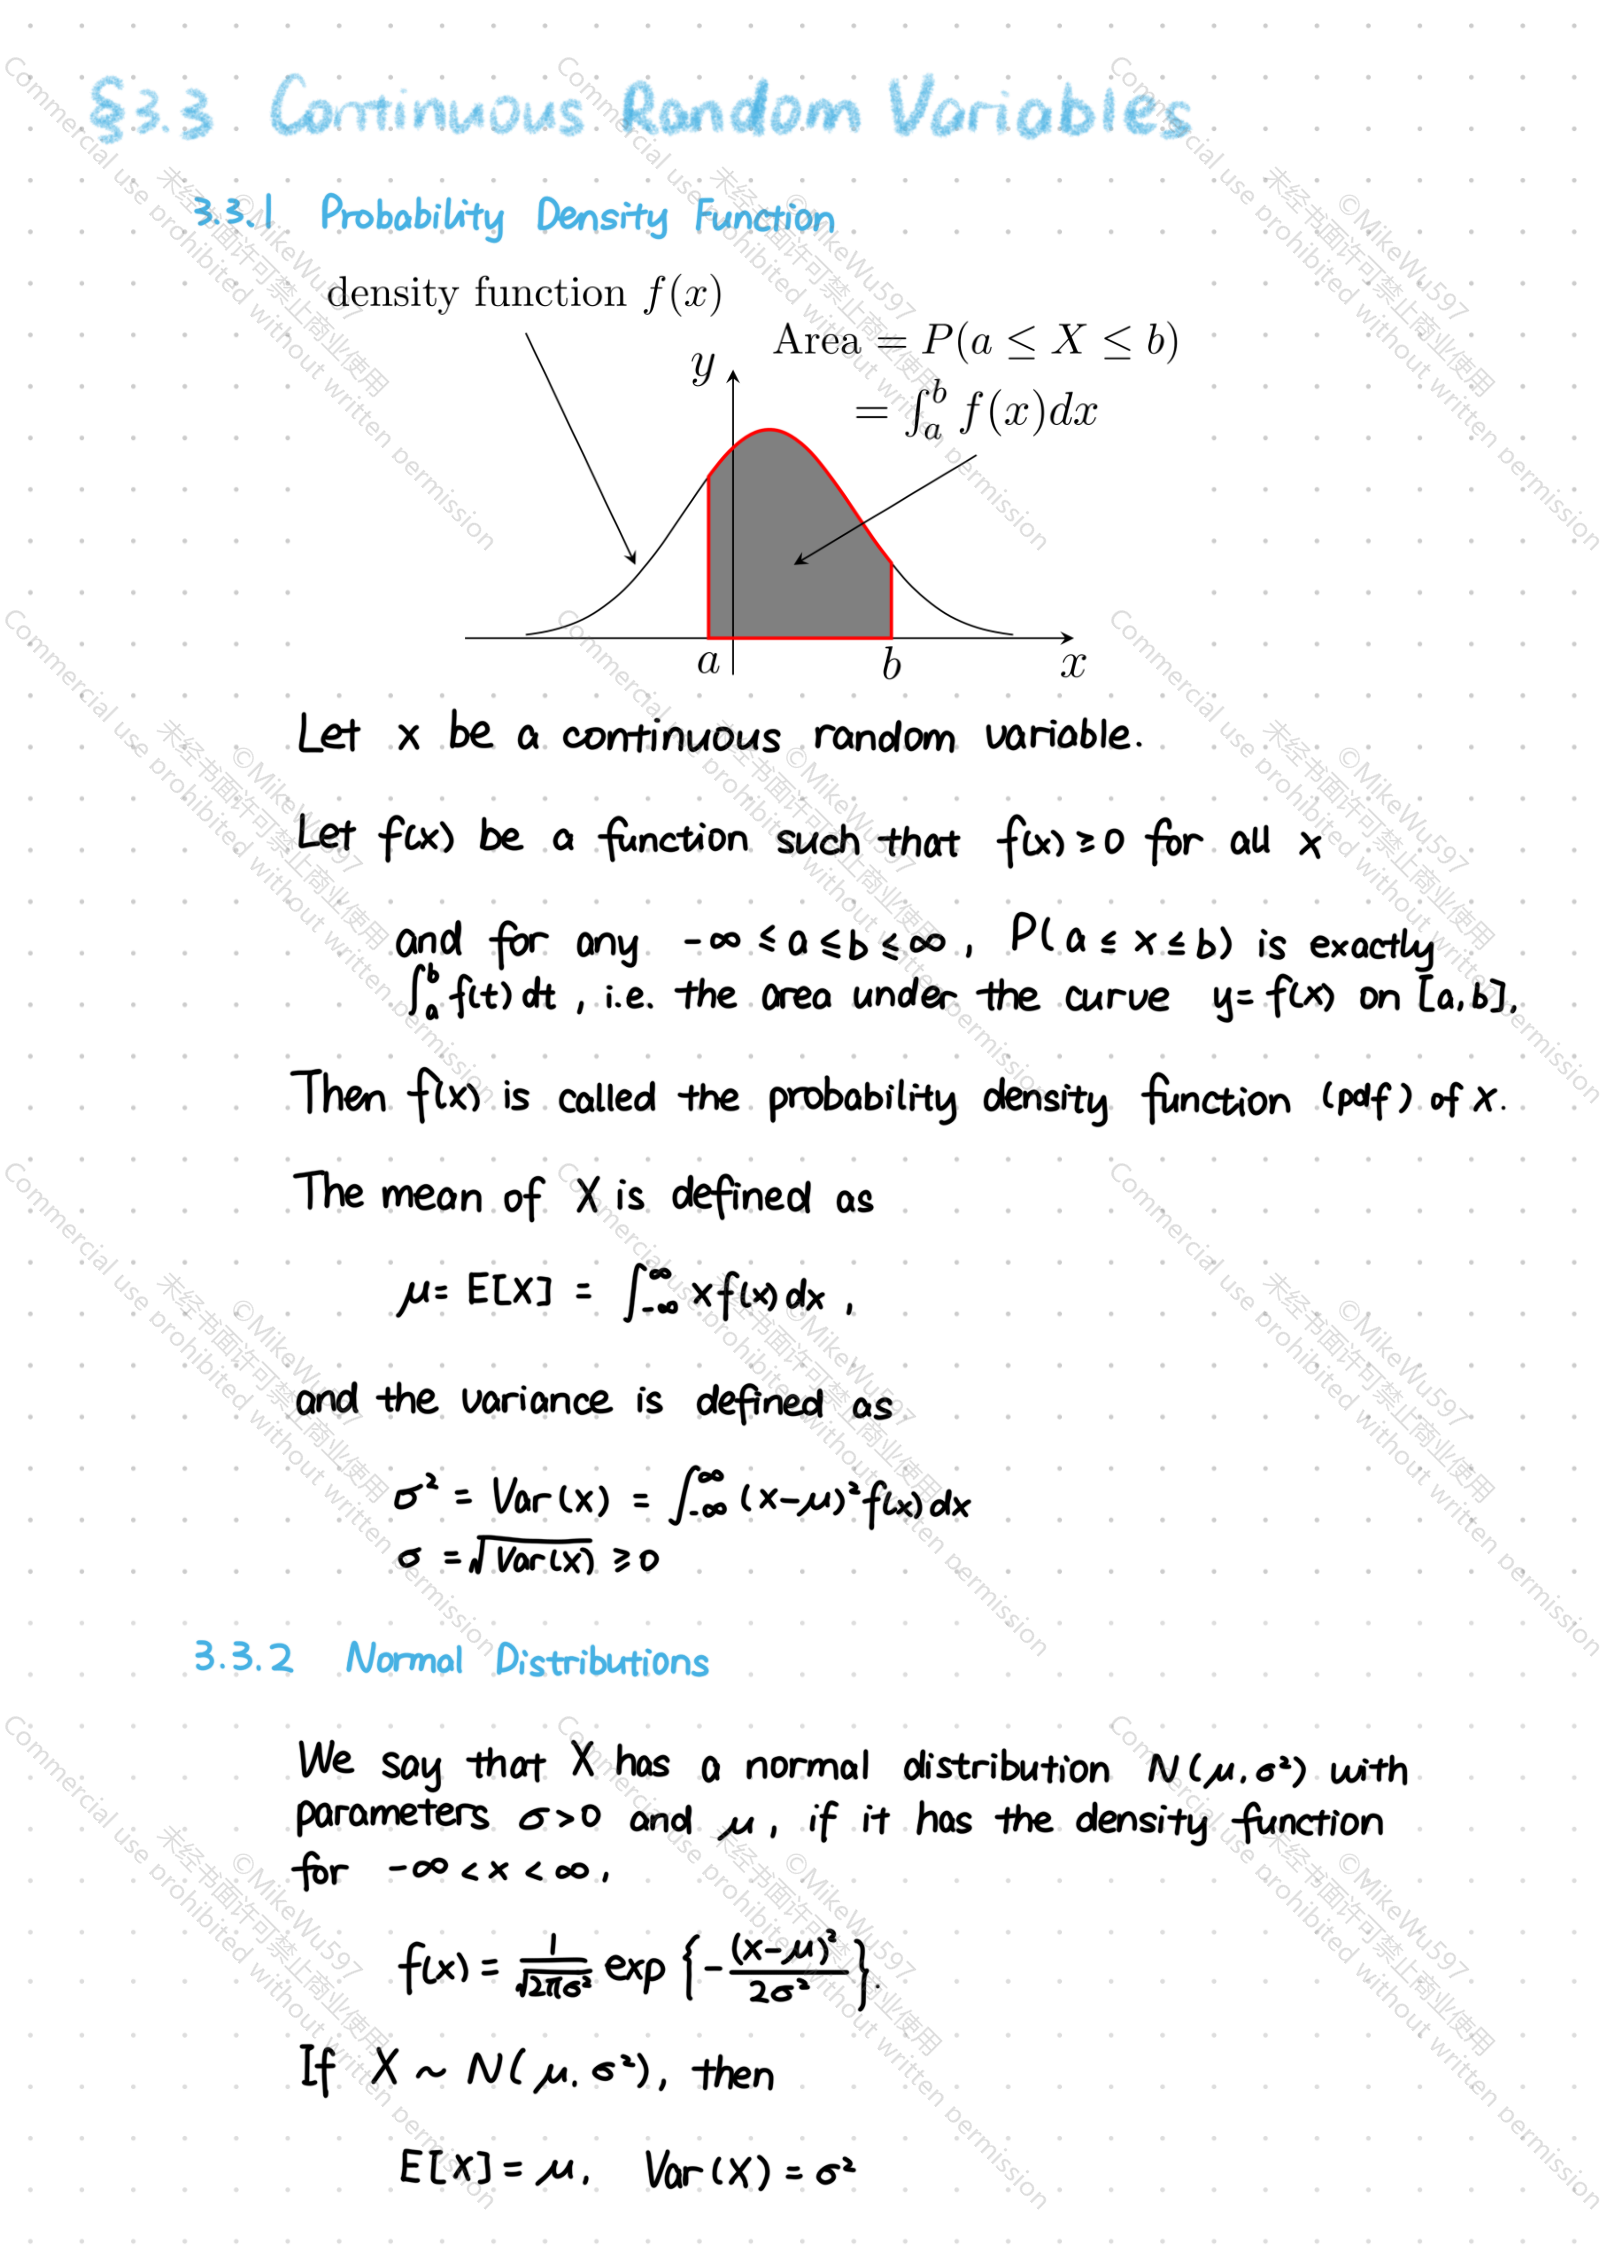 §3.3 Continuous Random Variables
3.3.1 Probability Density Function
density function f(x)
Area = P(a ≤ X ≤ b)
= ∫_a^b f(x)dx
y
a
b
x
Let x be a continuous random variable.
Let f(x) be a function such that f(x) ≥ 0 for all x
and for any -∞ ≤ a ≤ b ≤ ∞, P(a ≤ x ≤ b) is exactly
∫_a^b f(t) dt, i.e. the area under the curve y = f(x) on [a,b].
Then f(x) is called the probability density function (pdf) of X.
The mean of X is defined as
μ = E[X] = ∫_{-∞}^{∞} x f(x) dx,
and the variance is defined as
σ² = Var(x) = ∫_{-∞}^{∞} (x-μ)² f(x) dx
σ = √Var(X) ≥ 0
3.3.2 Normal Distributions
We say that X has a normal distribution N(μ, σ²) with
parameters σ > 0 and μ, if it has the density function
for -∞ < x < ∞,
f(x) = 1/√(2πσ²) exp {-(x-μ)²/2σ²}.
If X ~ N(μ, σ²), then
E[X] = μ, Var(X) = σ²
©MikeWu597
未经书面许可禁止商业使用
Commercial use prohibited without written permission